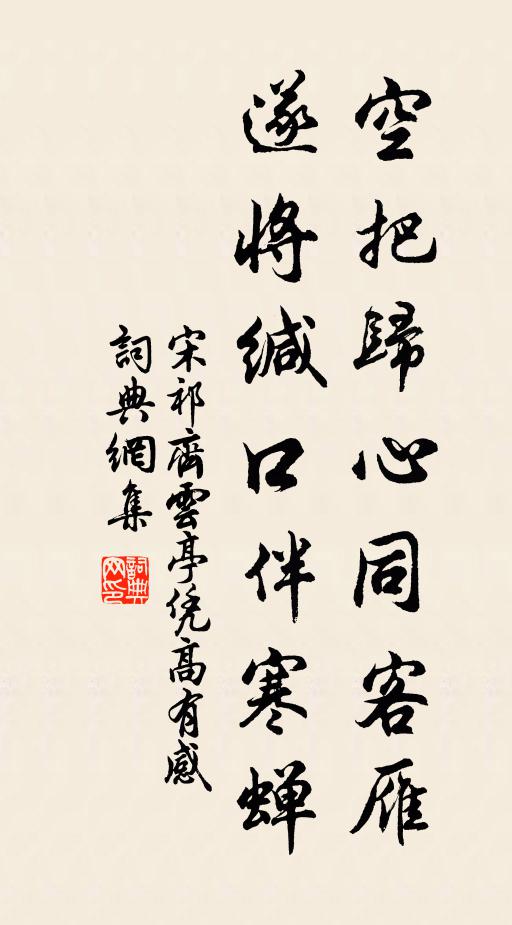 空把歸心同客雁
遂將緘口伴寒蟬
宋祁齊雲亭凭高有感
詞典網集
詞典网印